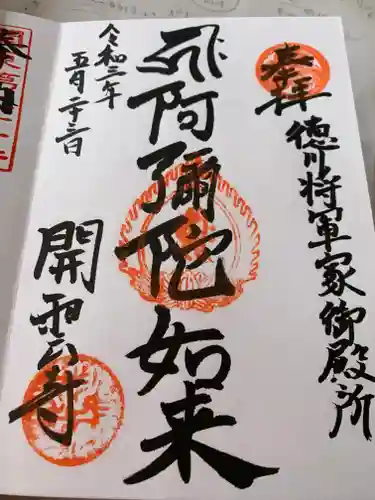 奉拝
徳川将軍家御殿所
阿彌陀如来
令和三年
五月二十三日
開雲寺